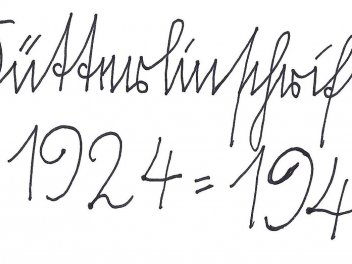 Sütterlinschrif
1924 = 194